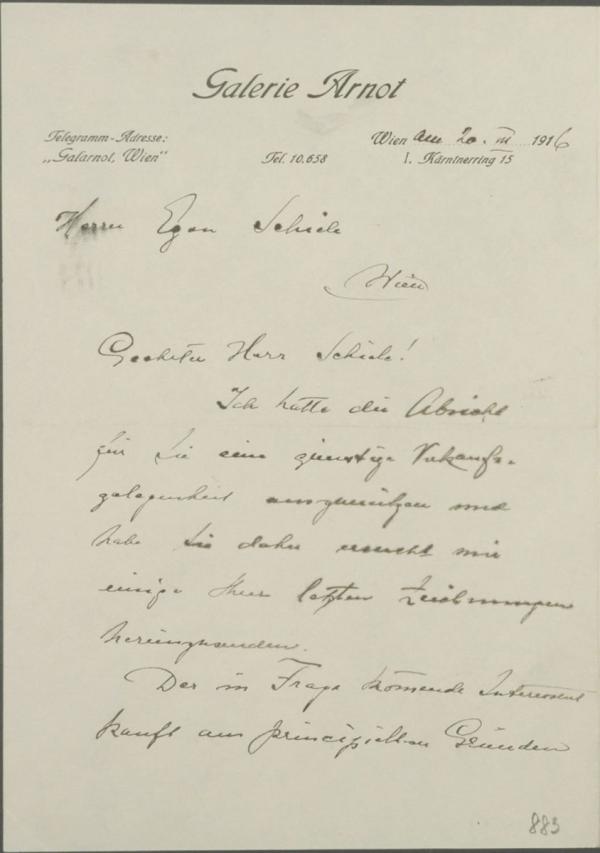 Galerie Arnot
Telegramm-Adresse:
„Galarnot, Wien“
Tel. 10.658
Wien am 20. III 1916
I. Kärntnerring 15
Herrn Egon Schiele
Wien
Geehrter Herr Schiele!
Ich hatte die Absicht
für Sie eine günstige Verkaufs-
gelegenheit auszunützen und
habe Sie daher ersucht mir
einige Ihrer letzten Zeichnungen
hereinzusenden.
Der in Frage kommende Interessent
kauft aus principiellen Gründen
883